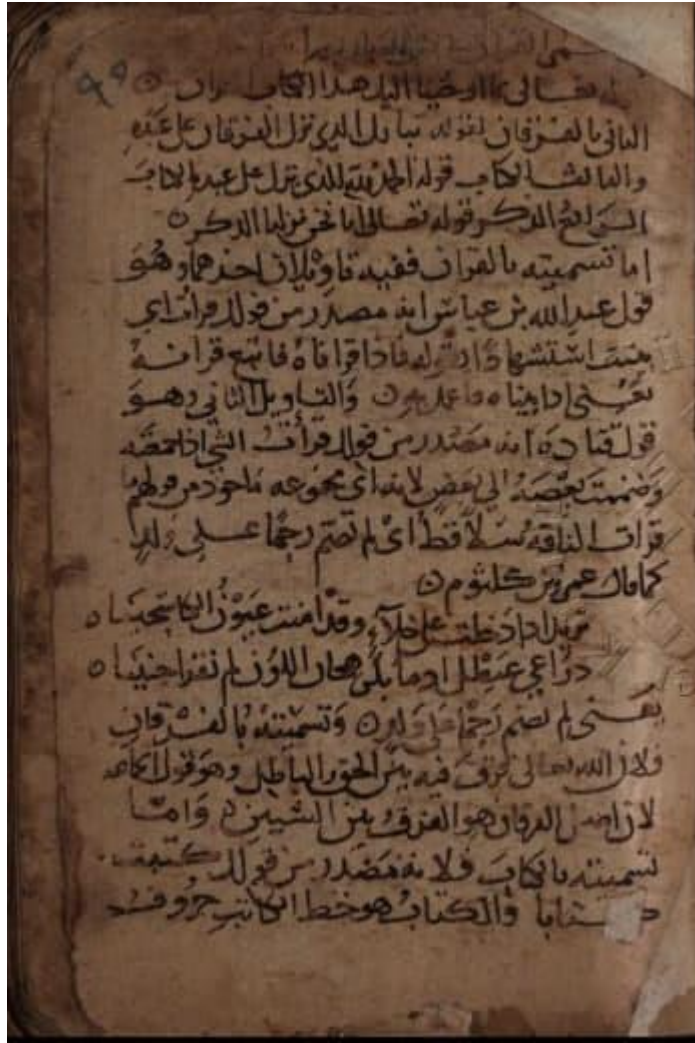 تعالى بما اوحينا اليك هذا القران
الثاني بالفرقان لقوله تبارك الذي نزل الفرقان على عبده
والثالث الكتاب قوله الحمد لله الذي نزل على عبده الكتاب
الرابع الذكر قوله تعالى انا نحن نزلنا الذكر
اما تسميته بالقران ففيه تاويلان احدهما وهو
قول عبد الله بن عباس انه مصدر من قولك قرات اي
بينت استشهادا بقوله فاذا قراناه فاتبع قرانه
يعني اذا بيناه فاعمل به والتاويل الثاني وهو
قول قتادة انه مصدر من قولك قرات الشي اذا جمعته
وضممت بعضه الى بعض لانه اي مجموعه ماخوذ من قولهم
قرات الناقه سلا قط اي لم تضم رحما على ولد
كما قال عمرو بن كلثوم
تريك اذا دخلت على خلاء وقد امنت عيون الكاشحينا
ذراعي عيطل ادما بكر هجان اللون لم تقرا جنينا
يعني لم تضم رحما على ولد وتسميته بالفرقان
فلان الله تعالى فرق فيه بين الحق والباطل وهو قول الجماعه
لان اصل الفرقان هو الفرق بين الشيين واما
تسميته بالكتاب فلانه مصدر من قولك كتبت
كتابا والكتاب هو خط الكاتب حروف